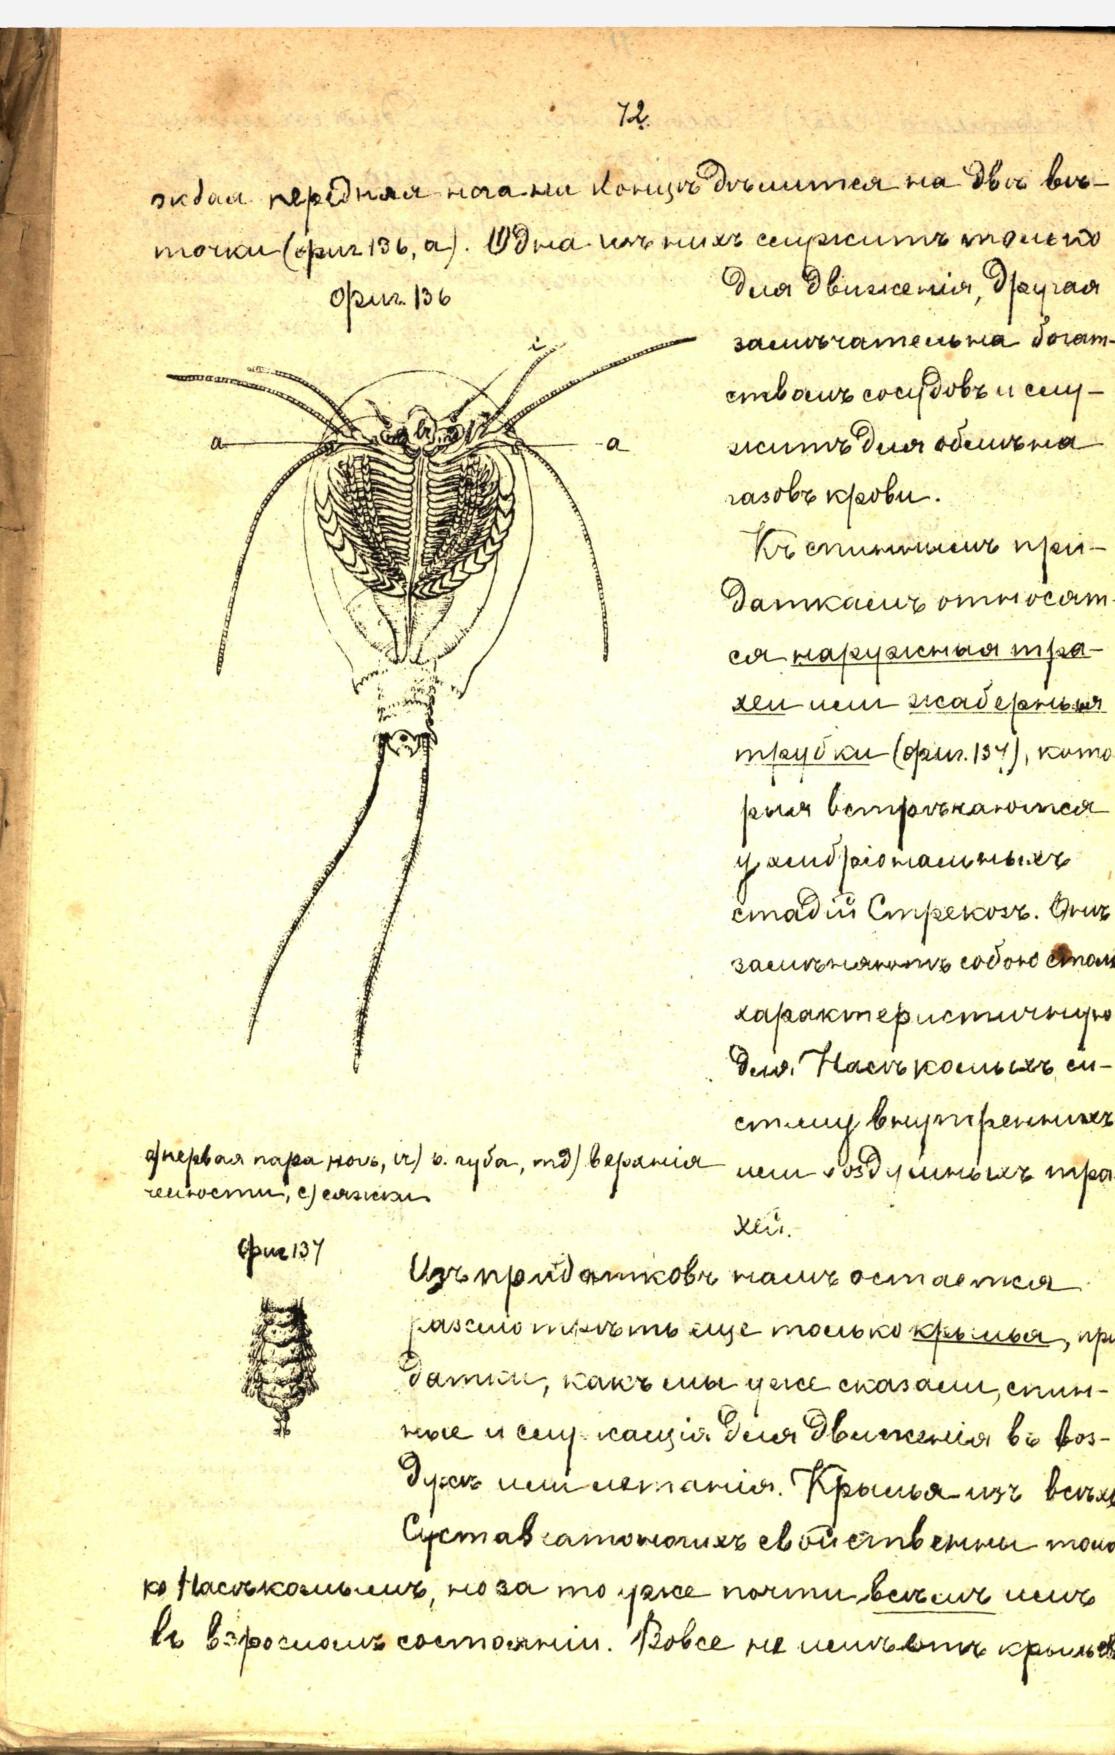 72.
ждая передняя нога на концѣ дѣлится на двѣ вѣ-
точки (фиг. 136, а). Одна изъ нихъ служитъ только
фиг. 136
для движенія, другая
замѣчательна богат-
ствомъ сосудовъ и слу-
житъ для обмѣна
газовъ крови.
Къ спиннымъ при-
даткамъ относят-
ся наружныя тра-
хеи или жаберныя
трубки (фиг. 137), кото
рыя встрѣчаются
у эмбріональныхъ
стадій Стрекозъ. Онѣ
замѣняютъ собою столь
характеристичную
для Насѣкомыхъ си-
стему внутреннихъ
или воздушныхъ тра
хей.
i
a
a
а) первая пара ногъ, в. губа, md) верхнія
челюсти, с) сяжки
фиг 137
Изъ придатковъ намъ остается
разсмотрѣть еще только крылья, при
датки, какъ мы уже сказали, спин-
ные и служащія для движенія въ воз-
духѣ или летанія. Крылья изъ всѣхъ
Суставчатоногихъ свойственны толь
ко Насѣкомымъ, но за то уже почти всѣмъ имъ
въ взросломъ состояніи. Вовсе не имѣютъ крыльевъ